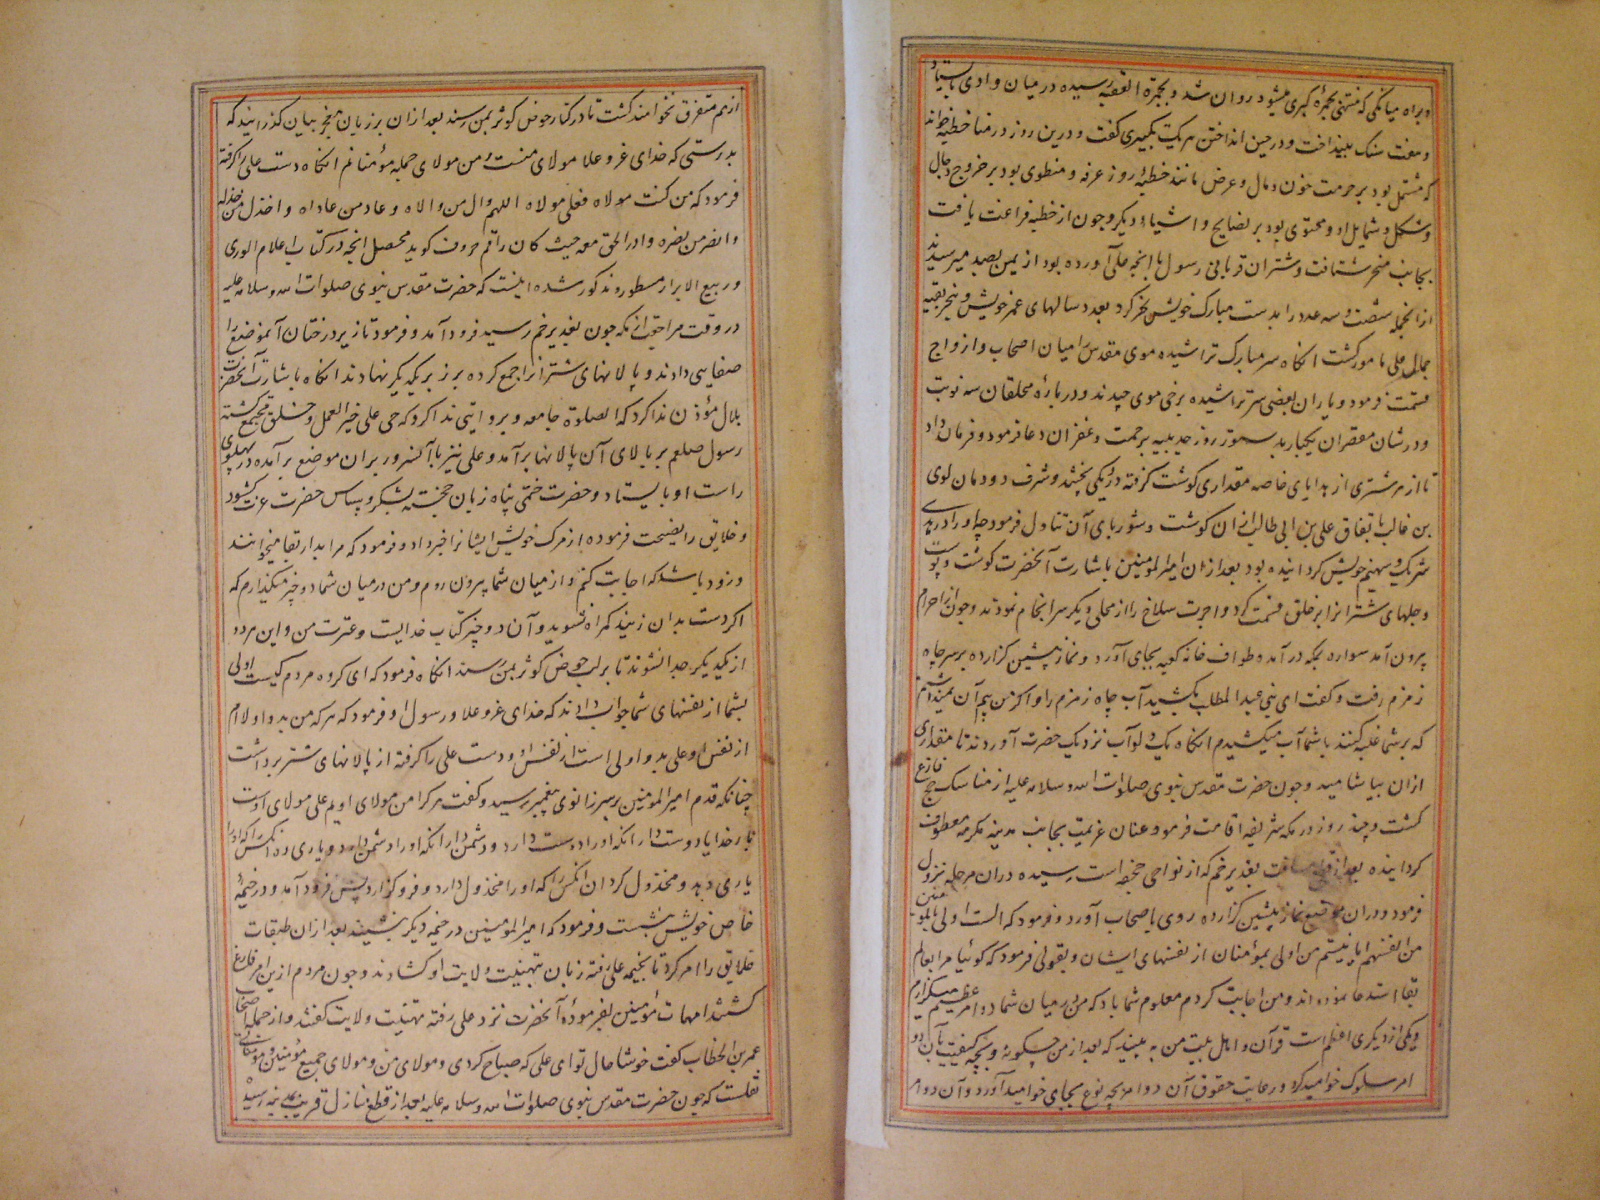 و براه میانکی که منتهی بجمرهٔ کبری میشود روان شد و بجمرة العقبه رسیده در میان وادی بایستاد
و هفت سنک بینداخت و در حین انداختن هر یک تکبیری کفت و درین روز در منا خطبهٔ خواند
که مشتمل بود بر حرمت خون و مال و عرض مانند خطبهٔ روز عرفه و منطوی بود بر خروج دجال
و شکل و شمایل او و محتوی بود بر نصایح و اشیاء دیکر و چون از خطبه فراغت یافت
بجانب منحر شتافت و شتران قربانی رسول با آنچه علی آورده بود از یمن بصد میرسید
از آنجمله شصت و سه عدد را بدست مبارک خویش نحر کرد بعدد سالهای عمر خویش و بنحر بقیه
جمال علی مامور کشت آنکاه سر مبارک تراشیده موی مقدس را میان اصحاب و ازواج
قسمت فرمود و یاران بعضی سر تراشیده برخی موی چیدند و دربارهٔ محلقان سه نوبت
و در شان مقصران یکبار بدستور روز حدیبیه برحمت و غفران دعا فرمود و فرمان داد
تا از هر شتری از هدایای خاصه مقداری کوشت کرفته در دیکی پختند و شرف دودمان لوی
بن غالب باتفاق علی بن ابی طالب از ان کوشت و شوربای آن تناول فرمود چه او را در هدی
شریک و سهیم خویش کردانیده بود بعد از ان امیر المؤمنین باشارت آنحضرت کوشت و پوست
و جلهای شترانرا بر خلق قسمت کرد و اجرت سلاخ را از محلی دیکر سرانجام نمودند و چون از احرام
بیرون آمد سواره بمکه در آمده طواف خانه کعبه بجای آورد و نماز پیشین کزارده بر سر چاه
زمزم رفت و کفت ای بنی عبد المطلب بکشید آب چاه زمزم را و اکر من بیم آن نمیداشتم
که بر شما غلبه کنند با شما آب میکشیدم آنکاه یک دلو آب نزدیک حضرت آوردند تا مقداری
ازان بیاشامید و چون حضرت مقدس نبوی صلوات الله وسلامه علیه از مناسک حج فارغ
کشت و چند روز در مکه شریفه اقامت فرمود عنان عزیمت بجانب مدینه مکرمه معطوف
کردانیده بعد از قطع مسافت بغدیر خم که از نواحی جحفه است رسیده دران مرحله نزول
فرمود و دران موضع نماز پیشین کزارده روی باصحاب آورد و فرمود که الست اولی بالمؤمنین
من انفسهم ایا نیستم من اولی بمؤمنان از نفسهای ایشان و بقولی فرمود که کوئیا مرا بعالم
بقا استدعا نموده اند و من اجابت کردم معلوم شما باد که من در میان شما دو امر عظیم میکزارم
و یکی از دیکری اعظم است قرآن و اهل بیت من به بینید که بعد از من چکونه و بچه کیفیت بآن دو
امر سلوک خواهید کرد و رعایت حقوق آن دو امر بچه نوع بجای خواهید آورد و آن دو امر
از هم متفرق نخواهند کشت تا در کنار حوض کوثر بمن رسند بعد ازان بر زبان معجز بیان کذرانید که
بدرستی که خدای عز و علا مولای منست و من مولای جمله مؤمنانم آنکاه دست علی را کرفته
فرمود که من کنت مولاه فعلی مولاه اللهم وال من والاه و عاد من عاداه و اخذل من خذله
وانصر من نصره وادر الحق معه حیث کان راقم حروف کوید محصل انچه در کتاب اعلام الوری
و ربیع الابرار مسطور و مذکور شده اینست که حضرت مقدس نبوی صلوات الله وسلامه علیه
در وقت مراجعت از مکه چون بغدیر خم رسید فرود آمد و فرمود تا زیر درختان آنموضع را
صفا می دادند و پالانهای شترانرا جمع کرده بر زبر یکدیکر نهادند آنکاه باشارت آنحضرت
بلال مؤذن ندا کرد که الصلوة جامعه و بروایتی ندا کرد که حی علی خیر العمل و خلق مجتمع کشته
رسول صلعم بر بالای آن پالانها برآمد و علی نیز با آنسرور بران موضع برآمده در پهلوی
راست او بایستاد و حضرت ختمی پناه زبان خجسته بشکر و سپاس حضرت عزت کشود
و خلایق را نصیحت فرموده از مرک خویش ایشانرا خبر داد و فرمود که مرا بدار بقا میخوانند
و زود باشد که اجابت کنم و از میان شما بیرون روم و من در میان شما دو چیز میکذارم که
اکر دست بدان زنید کمراه نشوید و آن دو چیز کتاب خدایست و عترت من و این هر دو
از یکدیکر جدا نشوند تا بر لب حوض کوثر بمن رسند آنکاه فرمود که ای کروه مردم کیست اولی
بشما از نفسهای شما جواب دادند که خدای عز و علا و رسول او فرمود که هر که من بدو اولاام
از نفس او علی بدو اولی است از نفس او و دست علی را کرفته از پالانهای شتر برداشت
چنانکه قدم امیر المؤمنین بر سر زانوی پیغمبر رسید و کفت هر کرا من مولای اویم علی مولای اوست
بار خدایا دوست دار آنکه او را دوست دارد و دشمن دار آنکه او را دشمن دارد و یاری ده آنکس را که او را
یاری دهد و مخذول کردان آنکس را که او را مخذول دارد و فرو کزارد پس فرود آمد و در خیمهٔ
خاص خویش بنشست و فرمود که امیر المؤمنین در خیمه دیکر بنشیند بعد ازان طبقات
خلایق را امر کرد تا بخیمه علی رفته زبان بتهنیت ولایت او کشادند و چون مردم ازین امر فارغ
کشتند امهات مؤمنین بفرمودهٔ آنحضرت نزد علی رفته تهنیت ولایت کفتند و از جمله اصحاب
عمر بن الخطاب کفت خوشا حال تو ای علی که صباح کردی و مولای من و مولای جمیع مؤمنین و مؤمناتی
نقلست که چون حضرت مقدس نبوی صلوات الله وسلامه علیه بعد از قطع منازل قریب بمدینه رسید